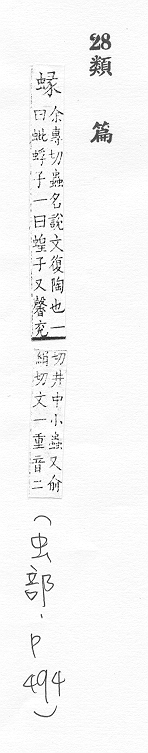 28類篇
蝝
余專切蟲名說文復陶也一
曰蚍蜉子一曰蝗子又馨兖
切井中小蟲又俞
絹切文一重音二
(虫部.P494)